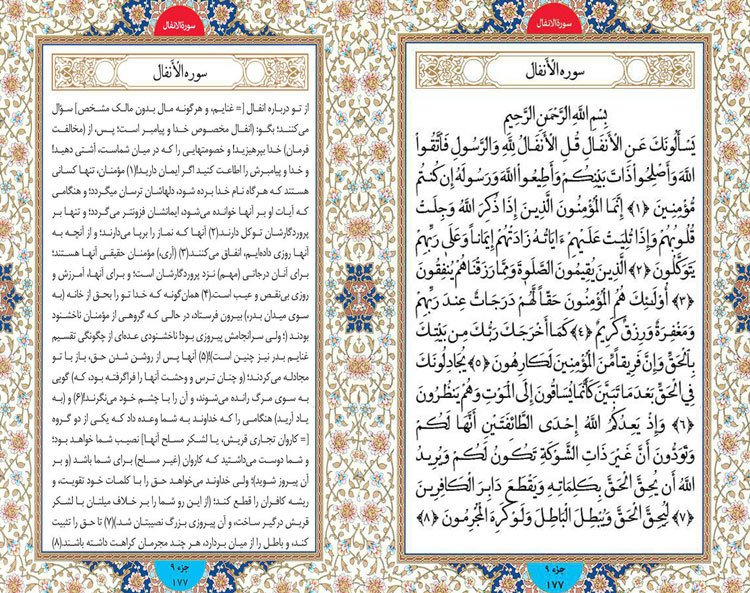 سورة الانفال
سوره الْأَنفال
بِسْمِ اللَّهِ الرَّحْمَٰنِ الرَّحِيمِ
يَسْأَلُونَكَ عَنِ الْأَنْفَالِ قُلِ الْأَنْفَالُ لِلَّهِ وَالرَّسُولِ فَاتَّقُوا
اللَّهَ وَأَصْلِحُوا ذَاتَ بَيْنِكُمْ وَأَطِيعُوا اللَّهَ وَرَسُولَهُ إِنْ كُنْتُمْ
مُؤْمِنِينَ ﴿۱﴾ إِنَّمَا الْمُؤْمِنُونَ الَّذِينَ إِذَا ذُكِرَ اللَّهُ وَجِلَتْ
قُلُوبُهُمْ وَإِذَا تُلِيَتْ عَلَيْهِمْ ءَايَاتُهُ زَادَتْهُمْ إِيمَاناً وَعَلَى رَبِّهِمْ
يَتَوَكَّلُونَ ﴿۲﴾ الَّذِينَ يُقِيمُونَ الصَّلَوةَ وَمِمَّا رَزَقْنَاهُمْ يُنْفِقُونَ
﴿۳﴾ أُولَئِكَ هُمُ الْمُؤْمِنُونَ حَقّاً لَهُمْ دَرَجَاتٌ عِنْدَ رَبِّهِمْ
وَمَغْفِرَةٌ وَرِزْقٌ كَرِيمٌ ﴿۴﴾ كَمَا أَخْرَجَكَ رَبُّكَ مِنْ بَيْتِكَ
بِالْحَقِّ وَإِنَّ فَرِيقاً مِنَ الْمُؤْمِنِينَ لَكَارِهُونَ ﴿۵﴾ يُجَادِلُونَكَ
فِي الْحَقِّ بَعْدَ مَا تَبَيَّنَ كَأَنَّمَا يُسَاقُونَ إِلَى الْمَوْتِ وَهُمْ يَنْظُرُونَ
﴿۶﴾ وَإِذْ يَعِدُكُمُ اللَّهُ إِحْدَى الطَّائِفَتَيْنِ أَنَّهَا لَكُمْ
وَتَوَدُّونَ أَنَّ غَيْرَ ذَاتِ الشَّوْكَةِ تَكُونُ لَكُمْ وَيُرِيدُ
اللَّهُ أَنْ يُحِقَّ الْحَقَّ بِكَلِمَاتِهِ وَيَقْطَعَ دَابِرَ الْكَافِرِينَ
﴿۷﴾ لِيُحِقَّ الْحَقَّ وَيُبْطِلَ الْبَاطِلَ وَلَوْ كَرِهَ الْمُجْرِمُونَ ﴿۸﴾
جزء ۹
۱۷۷
سورة الانفال
سوره الْأَنفال
از تو درباره انفال [= غنایم، و هرگونه مال بدون مالک مشخص] سؤال
می‌کنند؛ بگو: (انفال مخصوص خدا و پیامبر است؛ پس، از (مخالفت
فرمان) خدا بپرهیزید! و خصومتهایی را که در میان شماست، آشتی دهید!
و خدا و پیامبرش را اطاعت کنید اگر ایمان دارید!(۱) مؤمنان، تنها کسانی
هستند که هرگاه نام خدا برده شود، دلهاشان ترسان میگردد؛ و هنگامی
که آیات او بر آنها خوانده می‌شود، ایمانشان فزونتر می‌گردد؛ و تنها بر
پروردگارشان توکل دارند.(۲) آنها که نماز را برپا می‌دارند؛ و از آنچه به
آنها روزی داده‌ایم، انفاق می‌کنند.(۳) (آری،) مؤمنان حقیقی آنها هستند؛
برای آنان درجاتی (مهم) نزد پروردگارشان است؛ و برای آنها، آمرزش و
روزی بی‌نقص و عیب است.(۴) همان‌گونه که خدا تو را بحق از خانه (به
سوی میدان بدر،) بیرون فرستاد، در حالی که گروهی از مؤمنان ناخشنود
بودند (؛ ولی سرانجامش پیروزی بود! ناخشنودی عده‌ای از چگونگی تقسیم
غنایم بدر نیز چنین است)!(۵) آنها پس از روشن شدن حق، باز با تو
مجادله می‌کردند؛ (و چنان ترس و وحشت آنها را فراگرفته بود، که) گویی
به سوی مرگ رانده می‌شوند، و آن را با چشم خود می‌نگرند!(۶) و (به
یاد آرید) هنگامی را که خداوند به شما وعده داد که یکی از دو گروه
[= کاروان تجاری قریش، یا لشکر مسلح آنها] نصیب شما خواهد بود؛
و شما دوست می‌داشتید که کاروان (غیر مسلح) برای شما باشد (و بر
آن پیروز شوید)؛ ولی خداوند می‌خواهد حق را با کلمات خود تقویت، و
ریشه کافران را قطع کند؛ (از این رو شما را بر خلاف میلتان با لشکر
قریش درگیر ساخت، و آن پیروزی بزرگ نصیبتان شد.)(۷) تا حق را تثبیت
کند، و باطل را از میان بردارد، هر چند مجرمان کراهت داشته باشند.(۸)
جزء ۹
۱۷۷